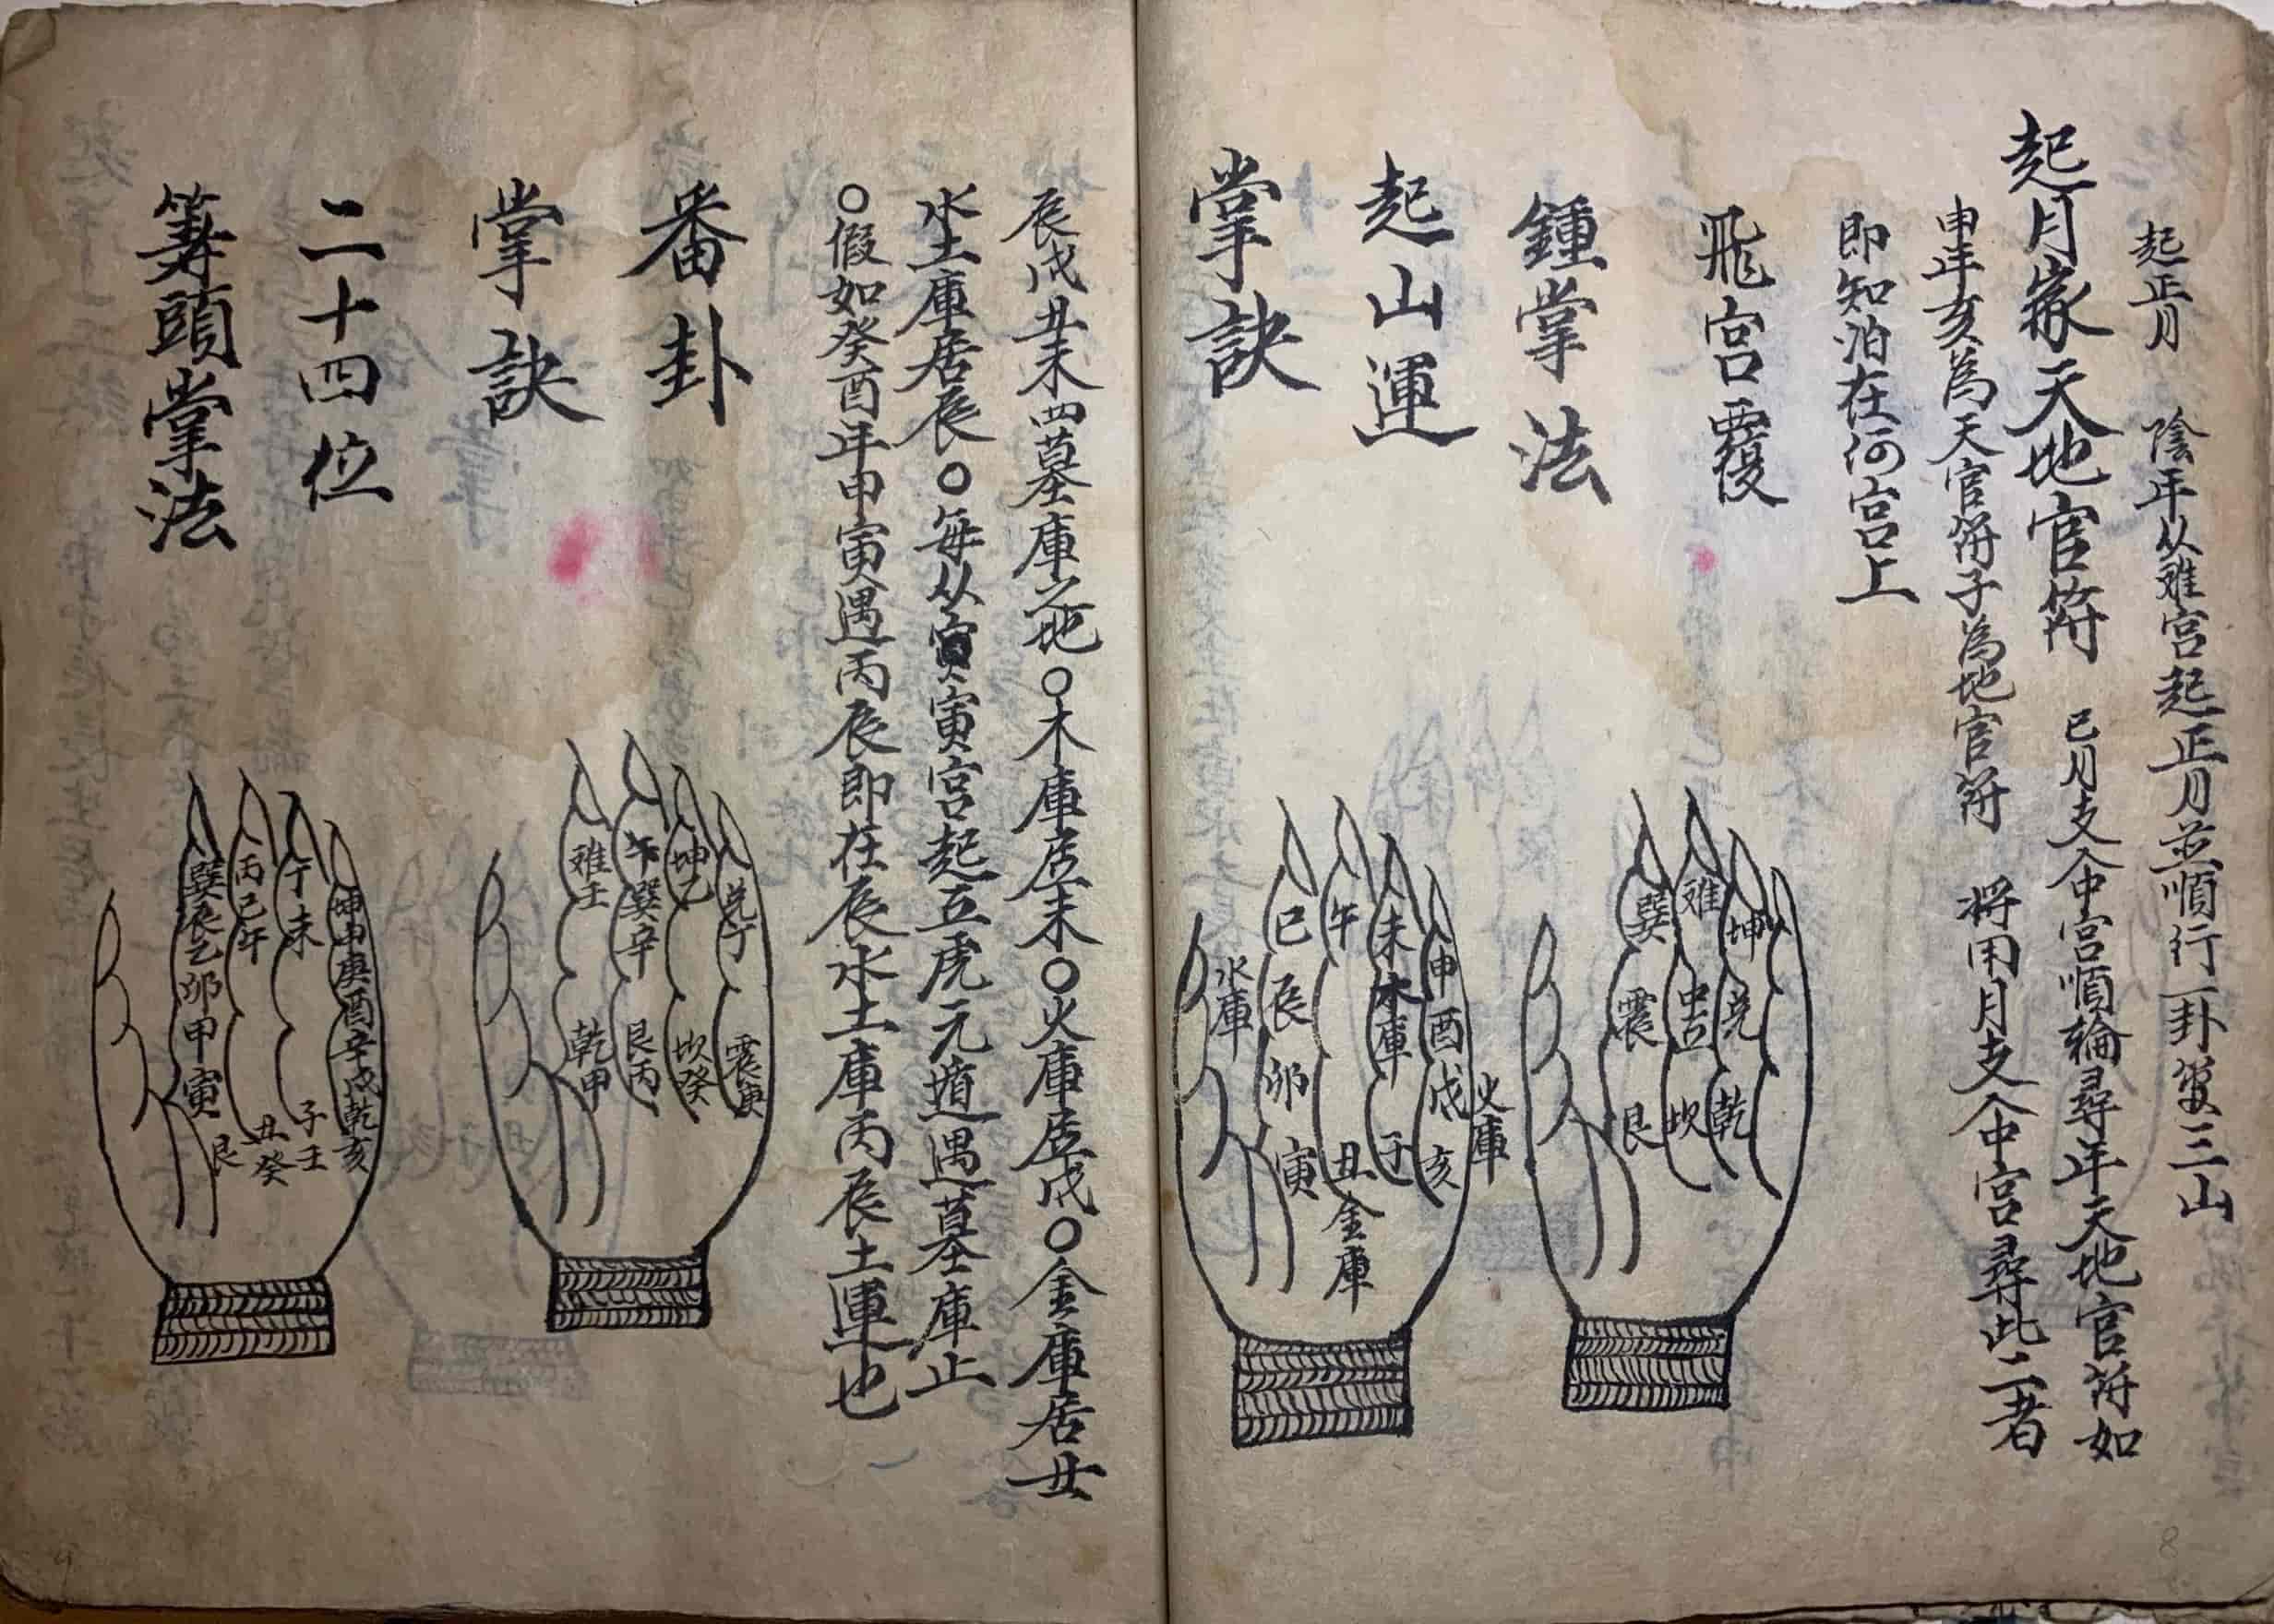 起正月　陰年从难宮起正月並順行一卦管三山
起月家天地官符　巳月支入中宮順輪尋年天地官符如
申年亥為天官符子為地官符　将用月支入中宮尋此二者
即知泊在何宮上
飛宮覆
鍾掌法
巽 难 坤
震 中宫 兑
艮 坎 乾
起山運
掌訣
巳 午 未 申
水庫 辰 木庫 酉
卯 戌 火庫
寅 丑 子 亥
金庫
辰戌丑未四墓庫之地○木庫居未○火庫居戌○金庫居丑
水土庫居辰○每从寅寅宮起五虎元遁遇墓庫止
○假如癸酉年甲寅遇丙辰即在辰水土庫丙辰土運也
番卦
掌訣
难壬 巽辛 坤乙 兑丁
乾甲 艮丙 坎癸 震庚
二十四位
筭頭掌法
巽辰乙卯甲寅
丙巳午
丁未
坤申庚酉辛戌乾亥
艮 丑癸 子壬